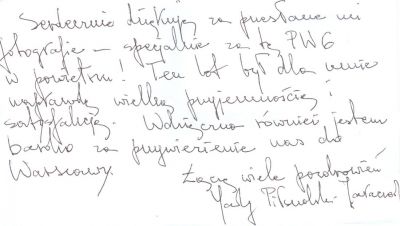 Serdecznie dziękuję za przesłane mi
fotografie – specjalnie za tę PWG
w powietrzu! Ten lot był dla mnie
naprawdę wielką przyjemnością i
satysfakcją. Wdzięczna również jestem
bardzo za przywiezienie nas do
Warszawy.
Łączę wiele pozdrowień
Jadwiga Piłsudska-Jaraczewska